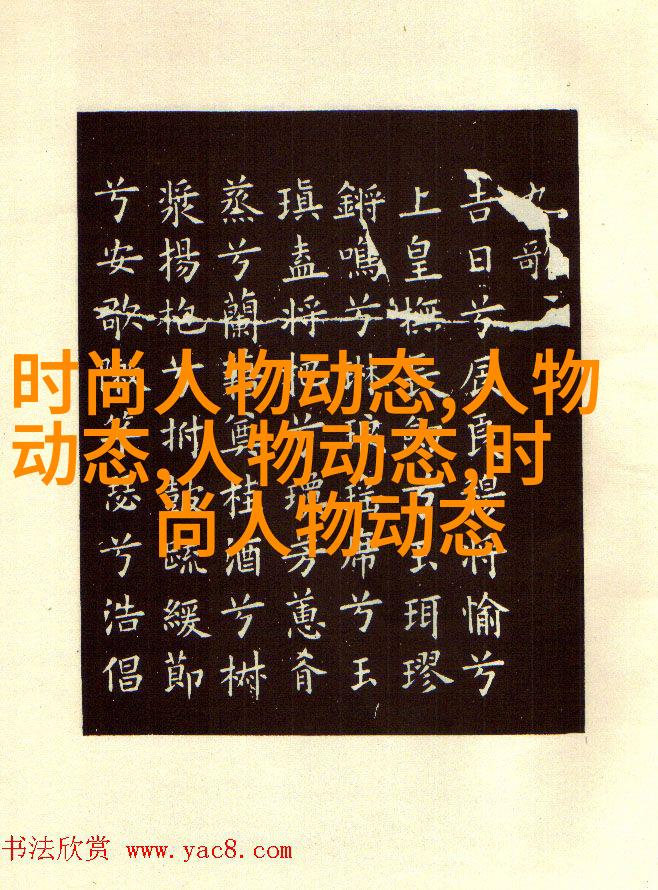 九歌
吉日兮辰良穆將愉兮
上皇撫長劍兮玉珥璆
鏘鳴兮琳琅瑤席兮玉
瑱盍將把兮瓊芳蕙肴
蒸兮蘭藉奠桂酒兮椒
漿揚枹兮拊鼓疏緩節
兮安歌陳竽瑟兮浩倡
时尚人物动态,人物
动态,人物动态,时
尚人物动态
书法欣赏 www.yac8.com